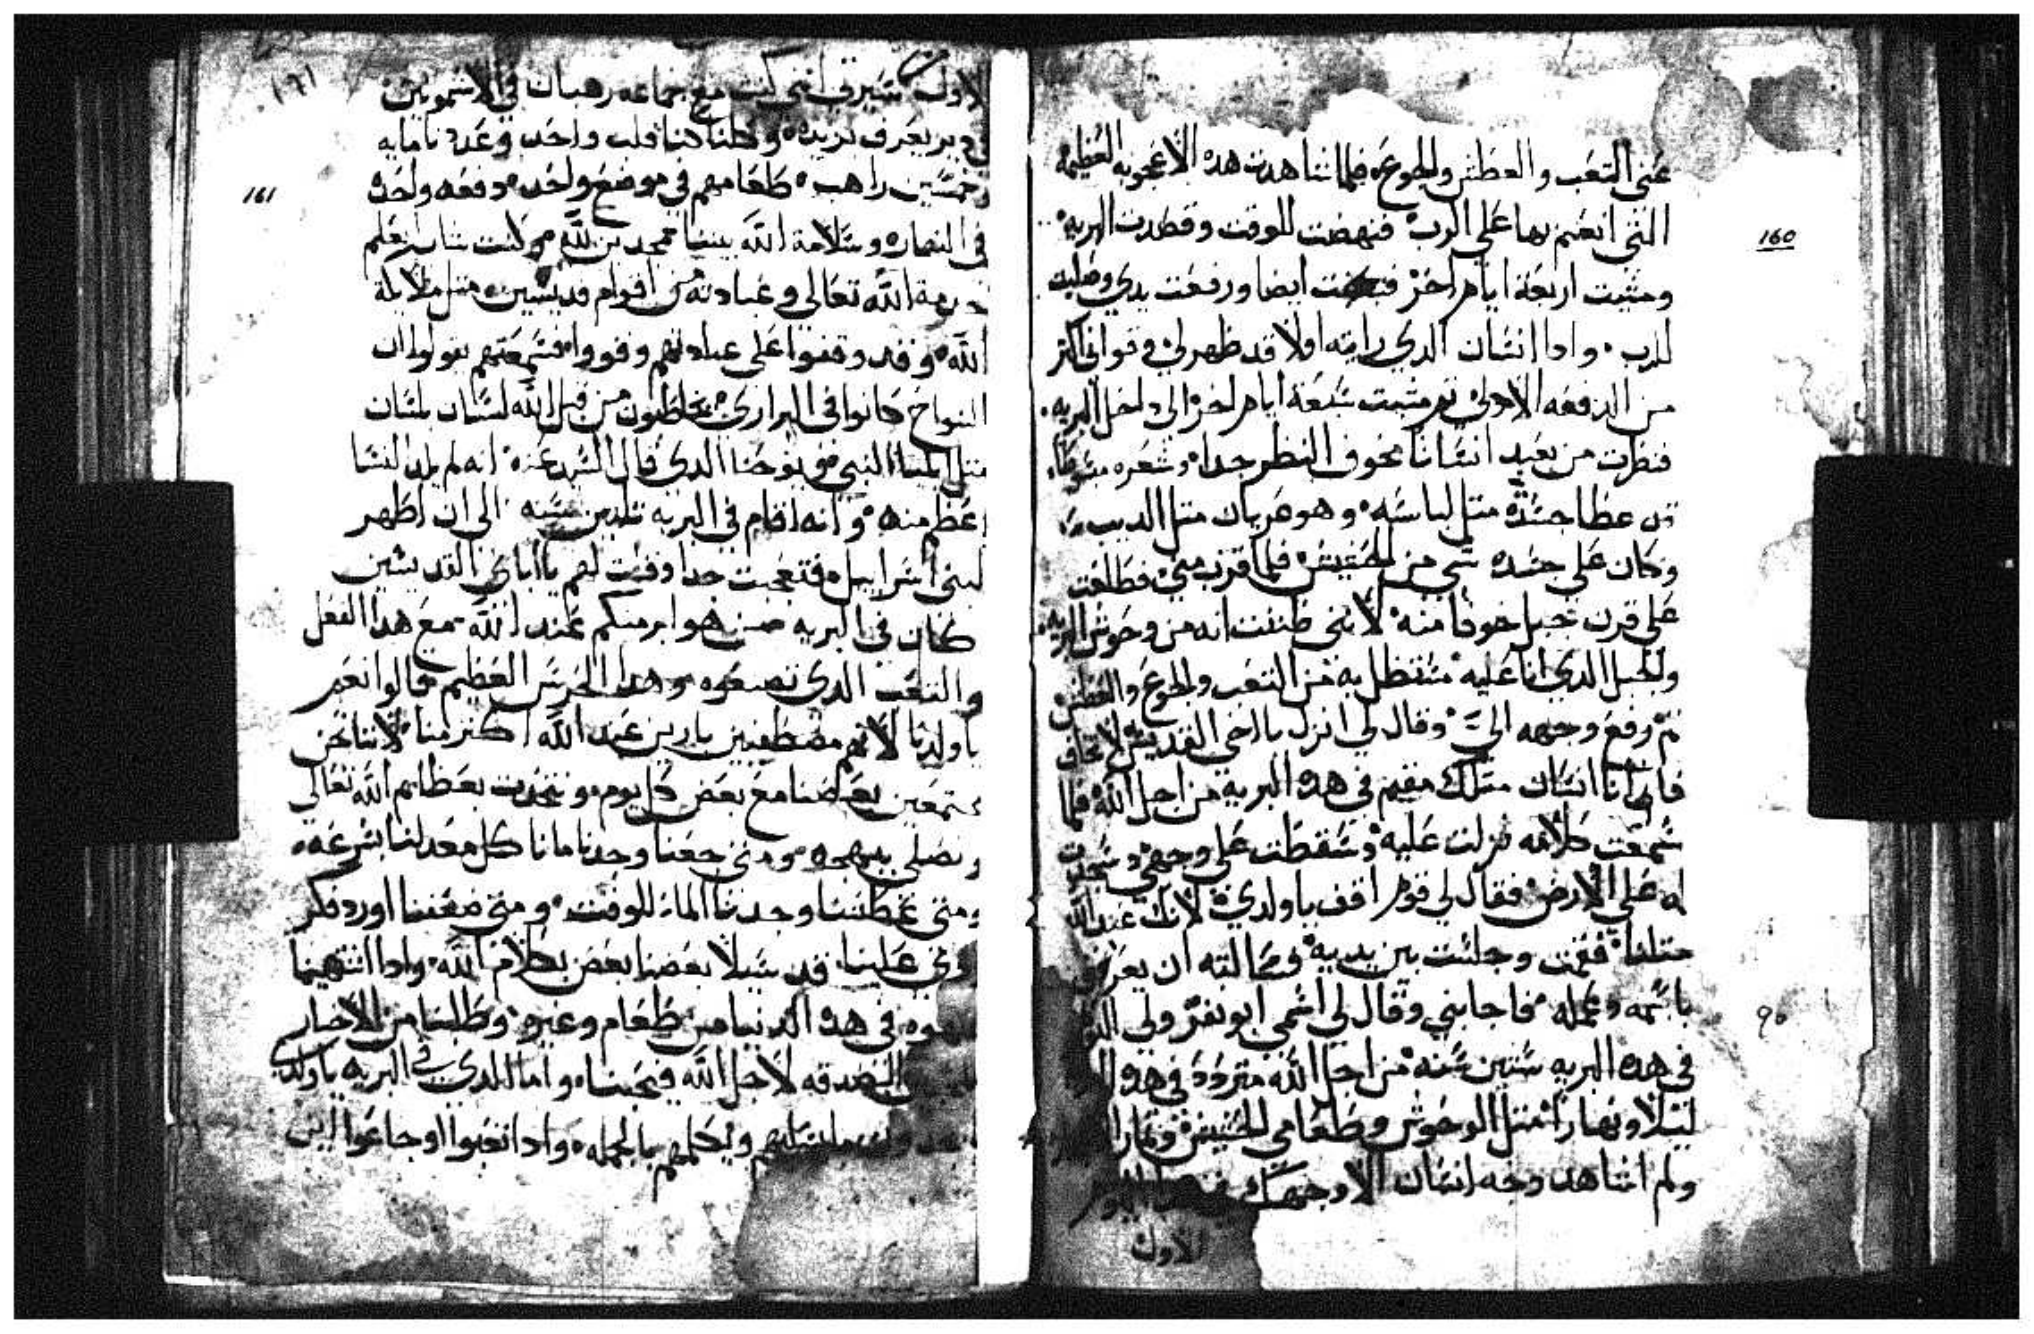 عني التعب والعطش والجوع فلما شاهدت هده الاعجوبه العظيمه
التي انعم بها علي الرب فنهضت للوقت وقصدت البريه
ومشيت اربعة ايام اخر ايضا ورفعت يدي وصليت
للرب وادا انسان الدي رايته اولا قد ظهر لي وقواني اكتر
من الدفعه الاولي تم مشيت سبعة ايام اخر الى داخل البريه
فنظرت من بعيد انسانا مخوف النظر جدا وشعره
قد غطا جسده متل لباسه وهو عريان متل الديب
وكان على جسده شي من الحشيش فلما قرب مني فطلعت
على قرن جبل خوفا منه لانني ظننت انه من وحوش البريه
والجبل الدي انا عليه من التعب والجوع والعطش
تم رفع وجهه الي وقال لي انزل يا اخي القديس لا تخاف
فاني انا انسان متلك مقيم في هده البرية من اجل الله فلما
سمعت كلامه نزلت عليه وسقطت على وجهي وسجدت
له على الارض فقال لي قوم اقف يا ولدي لانك عند الله
متلنا فقمت وجلست بين يديه وسالته ان يعرفني
باسمه وعمله فاجابني وقال لي اسمي ابو نفر ولي اليوم
في هده البريه ستين سنه من اجل الله متردد في هده
ليلا ونهارا متل الوحوش وطعامي الحشيش وتمار
ولم اشاهد وجه انسان الا وجهك
الاول
160
90
١٦١
الاول سيرتي انني كنت مع جماعه رهبان في الاشمونين
في دير يعرف وكلنا كنا قلب واحد وعددنا مايه
وخمسين راهب طعامهم في موضع واحد دفعه واحده
في النهار وسلامة الله بيننا ممجدين لله وكنت شاب اتعلم
خدمة الله تعالى وعبادته من اقوام قديسين متل ملايكة
الله وقد وقفوا على عبادتهم وقووا فسمعتهم يقولوا ان
السواح كانوا في البراري يخاطبون من قبل الله لسان بلسان
متل ايليا النبي ويوحنا الدي قال السيد عنه انه لم يلد النسا
اعظم منه وانه اقام في البريه تلتين سنه الى ان اظهر
لبني اسراييل فتعجبت جدا وقلت لهم يا اباي القديسين
كان في البريه من هو ابر منكم عند الله مع هدا الفعل
والتعب الدي تصنعوه وهدا الحرس العظيم قالوا نعم
يا ولدنا لانهم مصطفيين بارين عند الله اكتر منا لاننا نحن
مجتمعين بعضنا مع بعض كل يوم ونتحدت بعظايم الله تعالى
ونصلي ببهجه ومتى جعنا وجدنا ما ناكل معد لنا بسرعه
ومتى عطشنا وجدنا الماء للوقت ومتى ضعفنا اورد فكر
ردي علينا قد يسلا بعضنا بعض بكلام الله وادا اشتهينا
في هده الدنيا من طعام وغيره وطلبنا من الاخيار
الصدقه لاجل الله واما الدي في البريه يا ولدي
ويكلمهم بالجمله وادا تعبوا او جاعوا اين
161